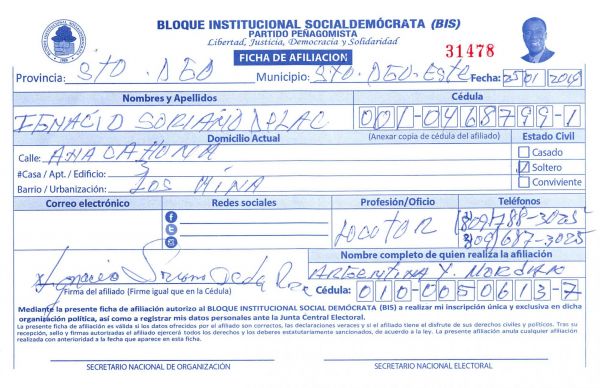 BLOQUE INSTITUCIONAL SOCIALDEMÓCRATA (BIS)
PARTIDO PEÑAGOMISTA
Libertad, Justicia, Democracia y Solidaridad
FICHA DE AFILIACION
31478
Provincia: Sto. Dgo Municipio: Sto. Dgo Este Fecha: 25 01
Nombres y Apellidos Cédula
IGNACIO SORIANO 001-0468799-1
Domicilio Actual (Anexar copia de cédula del afiliado) Estado Civil
Calle: ANACAHONA Casado
#Casa / Apt. / Edificio: 3 Soltero
Barrio / Urbanización: LOS MINA Conviviente
Correo electrónico Redes sociales Profesión/Oficio Teléfonos
LOCUTOR (809) 788-3025
809) 687-3025
Nombre completo de quien realiza la afiliación
Ignacio Soriano ARGENTINA Y.
Firma del afiliado (Firme igual que en la Cédula) Cédula: 010-0050613-7
Mediante la presente ficha de afiliación autorizo al BLOQUE INSTITUCIONAL SOCIAL DEMÓCRATA (BIS) a realizar mi inscripción única y exclusiva en dicha
organización política, así como a registrar mis datos personales ante la Junta Central Electoral.
La presente ficha de afiliación es válida si los datos ofrecidos por el afiliado son correctos, las declaraciones veraces y si el afiliado tiene el disfrute de sus derechos civiles y políticos. Tras su
recepción, sello y firmas autorizadas el afiliado ejercerá todos los derechos y los deberes estatutariamente sancionados, de acuerdo a la ley. La presente afiliación anula cualquier afiliación
realizada con anterioridad a la fecha que aparece en esta ficha.
SECRETARIO NACIONAL DE ORGANIZACIÓN SECRETARIO NACIONAL ELECTORAL